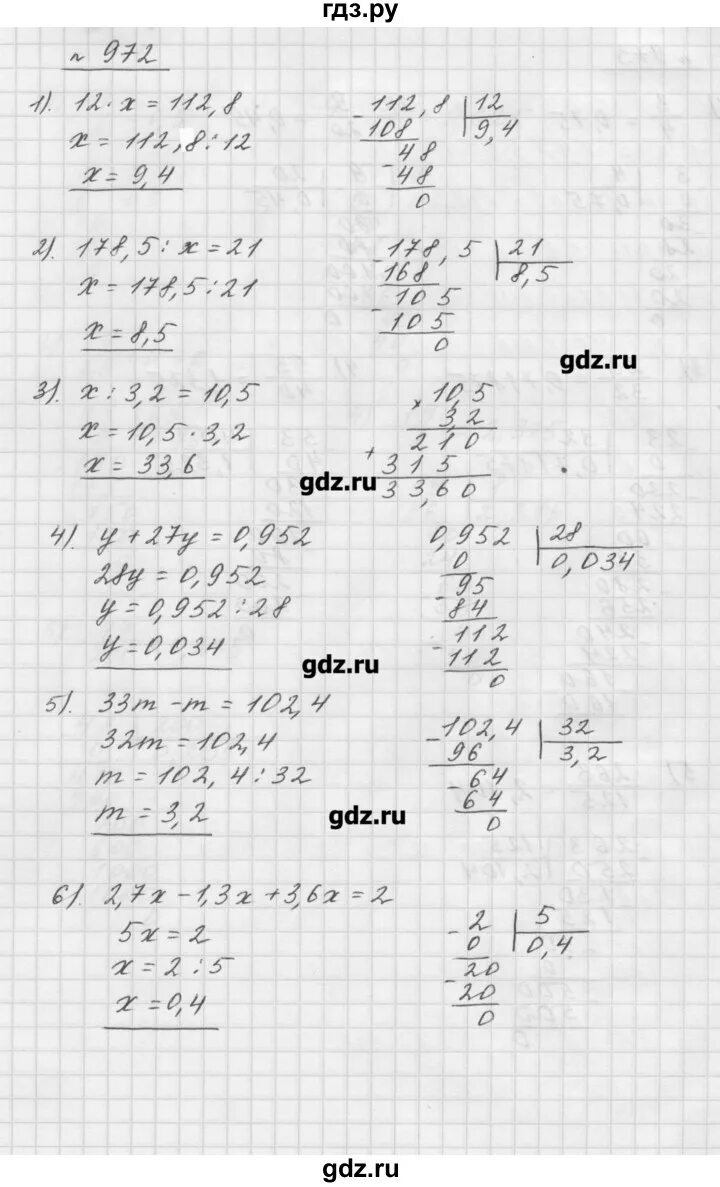 гдз.ру
№ 972
1). 12 · x = 112,8
x = 112,8 : 12
x = 9,4
-112,8 | 12
108 | 9,4
48
-48
0
2). 178,5 : x = 21
x = 178,5 : 21
x = 8,5
-178,5 | 21
168 | 8,5
105
-105
0
gdz.ru
3). x : 3,2 = 10,5
x = 10,5 · 3,2
x = 33,6
× 10,5
3,2
210
+315
33,60
gdz.ru
4). y + 27y = 0,952
28y = 0,952
y = 0,952 : 28
y = 0,034
0,952 | 28
0 | 0,034
-95
84
112
-112
0
gdz.ru
5). 33m - m = 102,4
32m = 102,4
m = 102,4 : 32
m = 3,2
-102,4 | 32
96 | 3,2
-64
64
0
gdz.ru
6). 2,7x - 1,3x + 3,6x = 2
5x = 2
x = 2 : 5
x = 0,4
-2 | 5
0 | 0,4
-20
20
0
gdz.ru